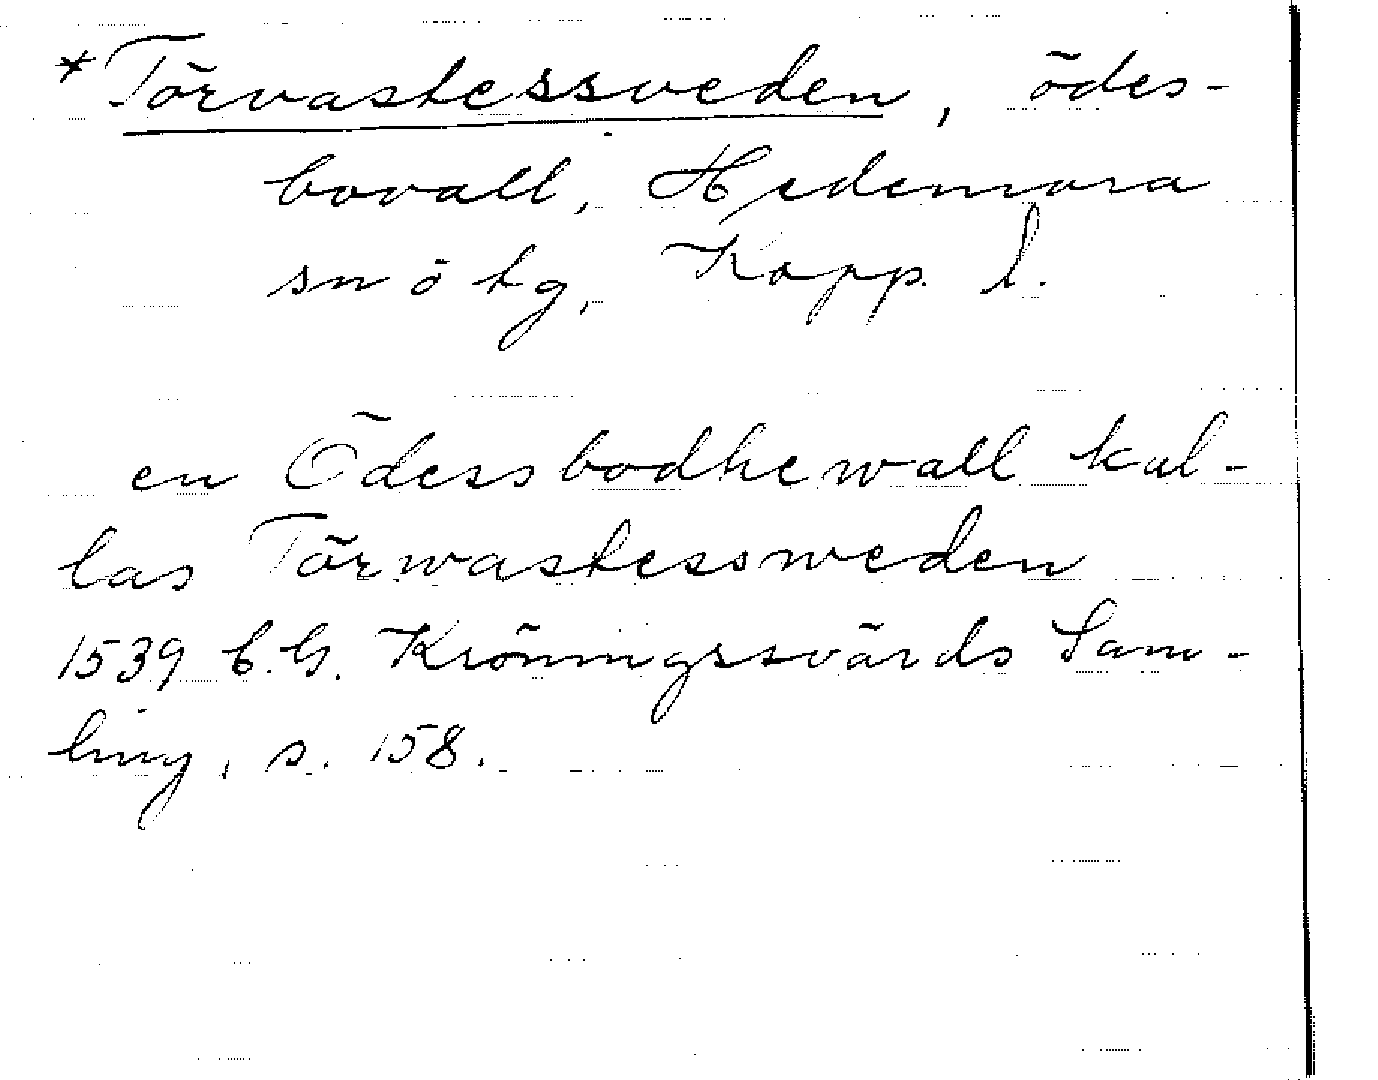 *Törvastessveden, ödes-
bovall, Hedemora
sn ö tg, Kopp. l.
en Ödessbodhewall kal-
las Törwastessweden
1539 C.G. Kröningssvärds Sam-
ling, s. 158.